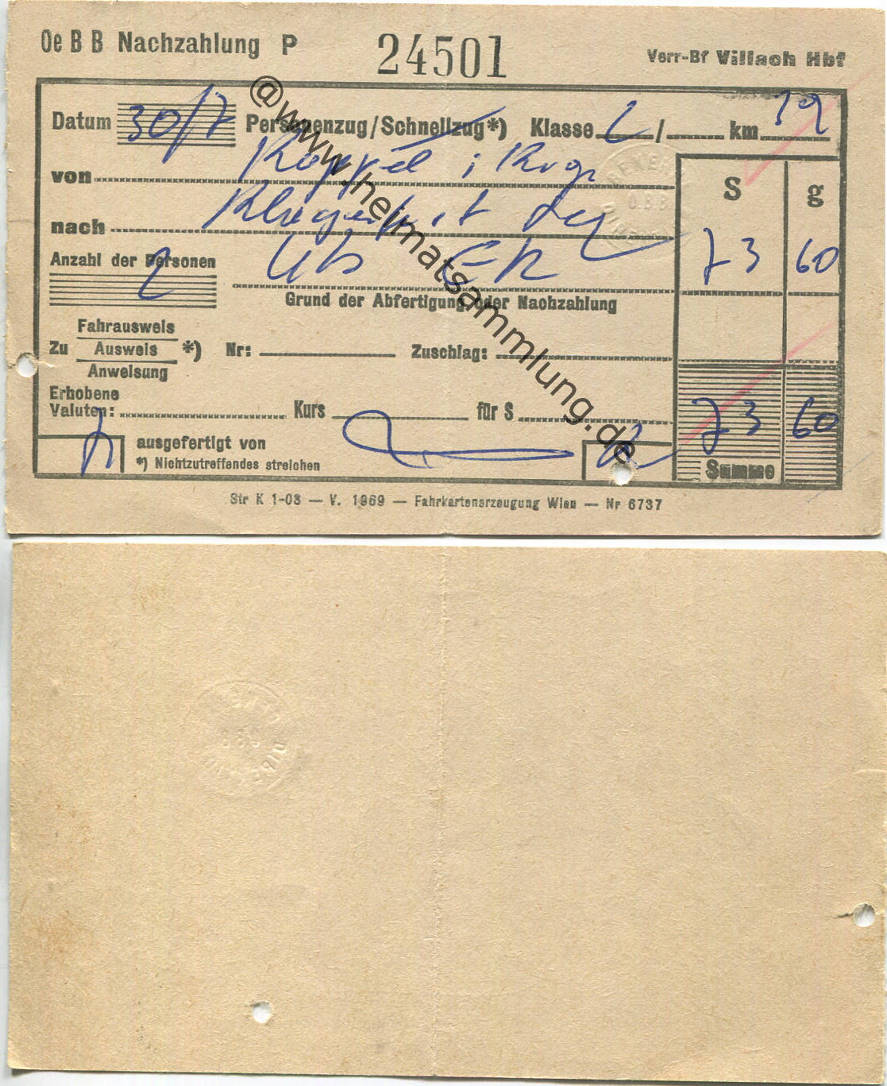 Oe B B Nachzahlung P 24501 Verr-Bf Villach Hbf
Datum 30/7 Personenzug/Schnellzug*) Klasse 2 / km 19
von i
nach
S g
73 60
Anzahl der Personen 2
Grund der Abfertigung oder Nachzahlung
Fahrausweis
Zu Ausweis *) Nr: Zuschlag:
Anweisung
Erhobene
Valuten: Kurs für S
73 60
ausgefertigt von
*) Nichtzutreffendes streichen
Summe
Str K 1-03 — V. 1969 — Fahrkartenerzeugung Wien — Nr 6737
@www.heimatsammlung.de